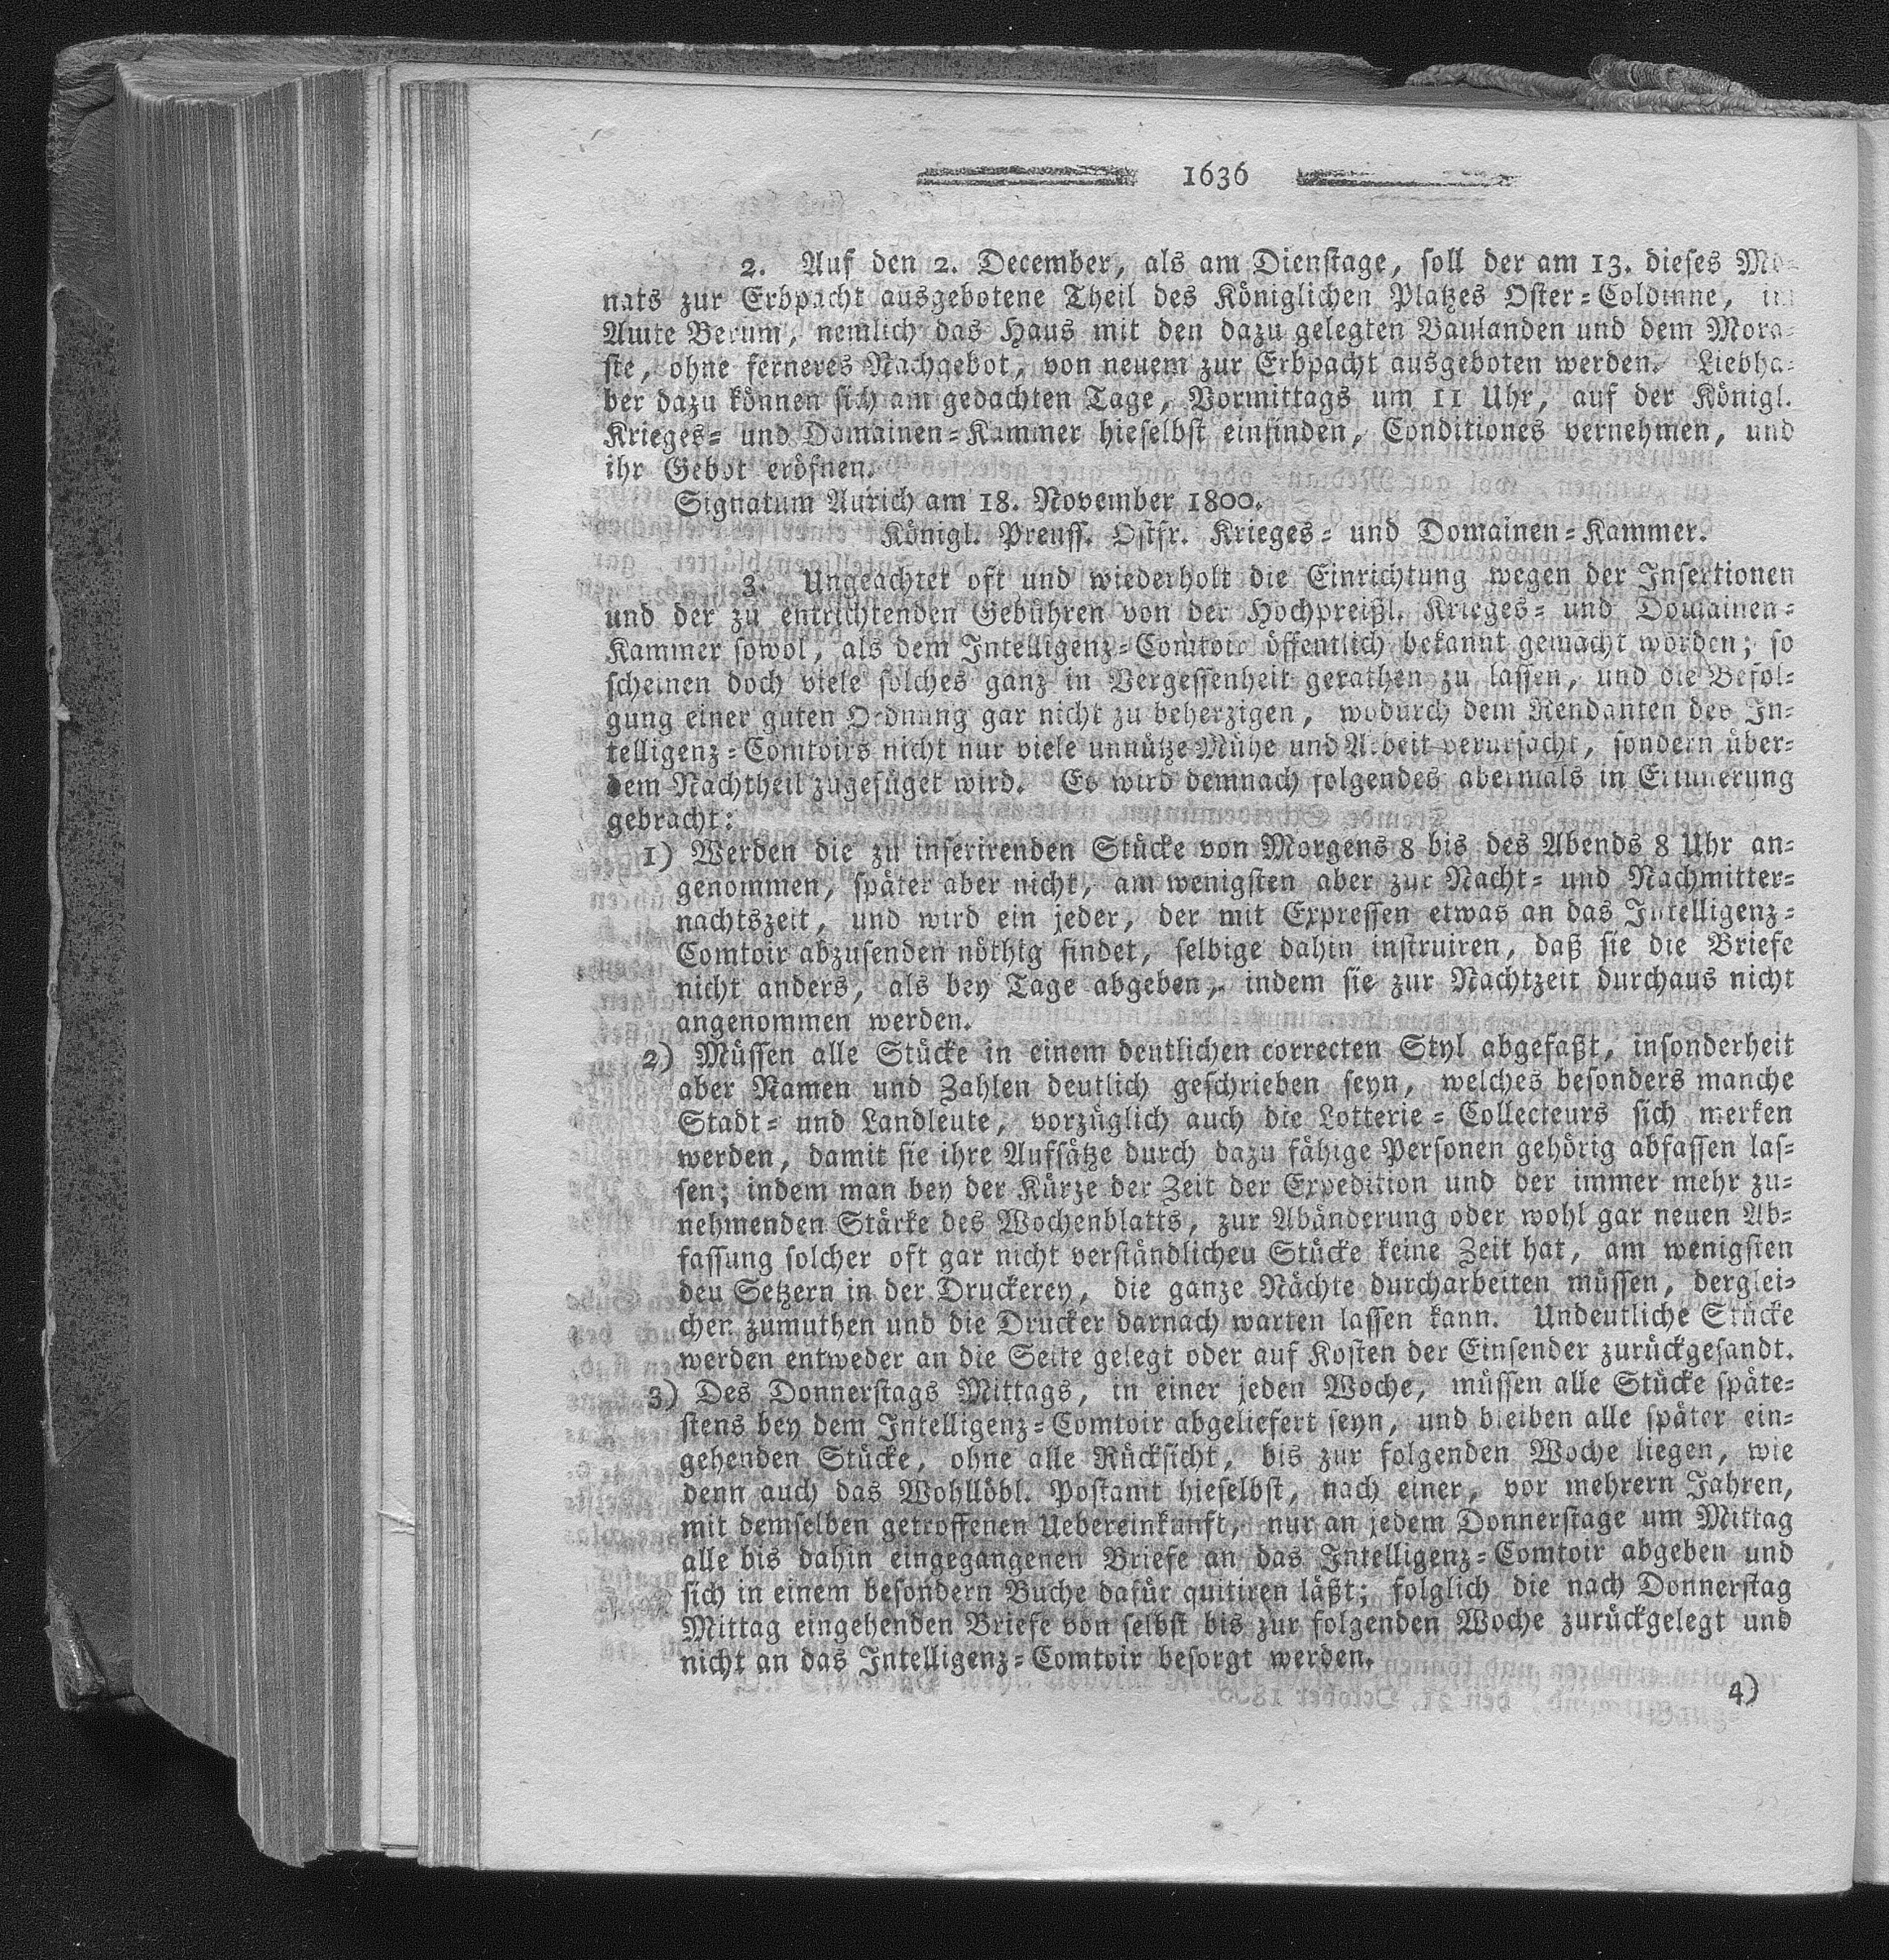 1636
2. Auf den 2. December, als am Dienstage, soll der am 13. dieses Mo-
nats zur Erbpacht ausgebotene Theil des Königlichen Platzes Oster-Coldinne, im
Amte Berum, nemlich das Haus mit den dazu gelegten Baulanden und dem Mora-
ste, ohne ferneres Nachgebot, von neuem zur Erbpacht ausgeboten werden. Liebha-
ber dazu können sich am gedachten Tage, Vormittags um 11 Uhr, auf der Königl.
Krieges- und Domainen-Kammer hieselbst einfinden, Conditiones vernehmen, und
ihr Gebot eröfnen.
Signatum Aurich am 18. November 1800.
Königl. Preuss. Ostfr. Krieges- und Domainen-Kammer.
3. Ungeachtet oft und wiederholt die Einrichtung wegen der Insertionen
und der zu entrichtenden Gebühren von der Hochpreißl. Krieges- und Domainen-
Kammer sowol, als dem Intelligenz-Comtoir öffentlich bekannt gemacht worden; so
scheinen doch viele solches ganz in Vergessenheit gerathen zu lassen, und die Befol-
gung einer guten Ordnung gar nicht zu beherzigen, wodurch dem Rendanten des In-
telligenz-Comtoirs nicht nur viele unnütze Mühe und Arbeit verursacht, sondern über-
dem Nachtheil zugefüget wird. Es wird demnach folgendes abermals in Erinnerung
gebracht:
1) Werden die zu inserirenden Stücke von Morgens 8 bis des Abends 8 Uhr an-
genommen, später aber nicht, am wenigsten aber zur Nacht- und Nachmitter-
nachtszeit, und wird ein jeder, der mit Expressen etwas an das Intelligenz-
Comtoir abzusenden nöthig findet, selbige dahin instruiren, daß sie die Briefe
nicht anders, als bey Tage abgeben, indem sie zur Nachtzeit durchaus nicht
angenommen werden.
2) Müssen alle Stücke in einem deutlichen correcten Styl abgefaßt, insonderheit
aber Namen und Zahlen deutlich geschrieben seyn, welches besonders manche
Stadt- und Landleute, vorzüglich auch die Lotterie-Collecteurs sich merken
werden, damit sie ihre Aufsätze durch dazu fähige Personen gehörig abfassen las-
sen; indem man bey der Kürze der Zeit der Expedition und der immer mehr zu-
nehmenden Stärke des Wochenblatts, zur Abänderung oder wohl gar neuen Ab-
fassung solcher oft gar nicht verständlichen Stücke keine Zeit hat, am wenigsten
den Setzern in der Druckerey, die ganze Nächte durcharbeiten müssen, derglei-
chen zumuthen und die Drucker darnach warten lassen kann. Undeutliche Stücke
werden entweder an die Seite gelegt oder auf Kosten der Einsender zurückgesandt.
3) Des Donnerstags Mittags, in einer jeden Woche, müssen alle Stücke späte-
stens bey dem Intelligenz-Comtoir abgeliefert seyn, und bleiben alle später ein-
gehenden Stücke, ohne alle Rücksicht, bis zur folgenden Woche liegen, wie
denn auch das Wohllöbl. Postamt hieselbst, nach einer, vor mehrern Jahren,
mit demselben getroffenen Uebereinkunft, nur an jedem Donnerstage um Mittag
alle bis dahin eingegangenen Briefe an das Intelligenz-Comtoir abgeben und
sich in einem besondern Buche dafür quitiren läßt; folglich die nach Donnerstag
Mittag eingehenden Briefe von selbst bis zur folgenden Woche zurückgelegt und
nicht an das Intelligenz-Comtoir besorgt werden.
4)